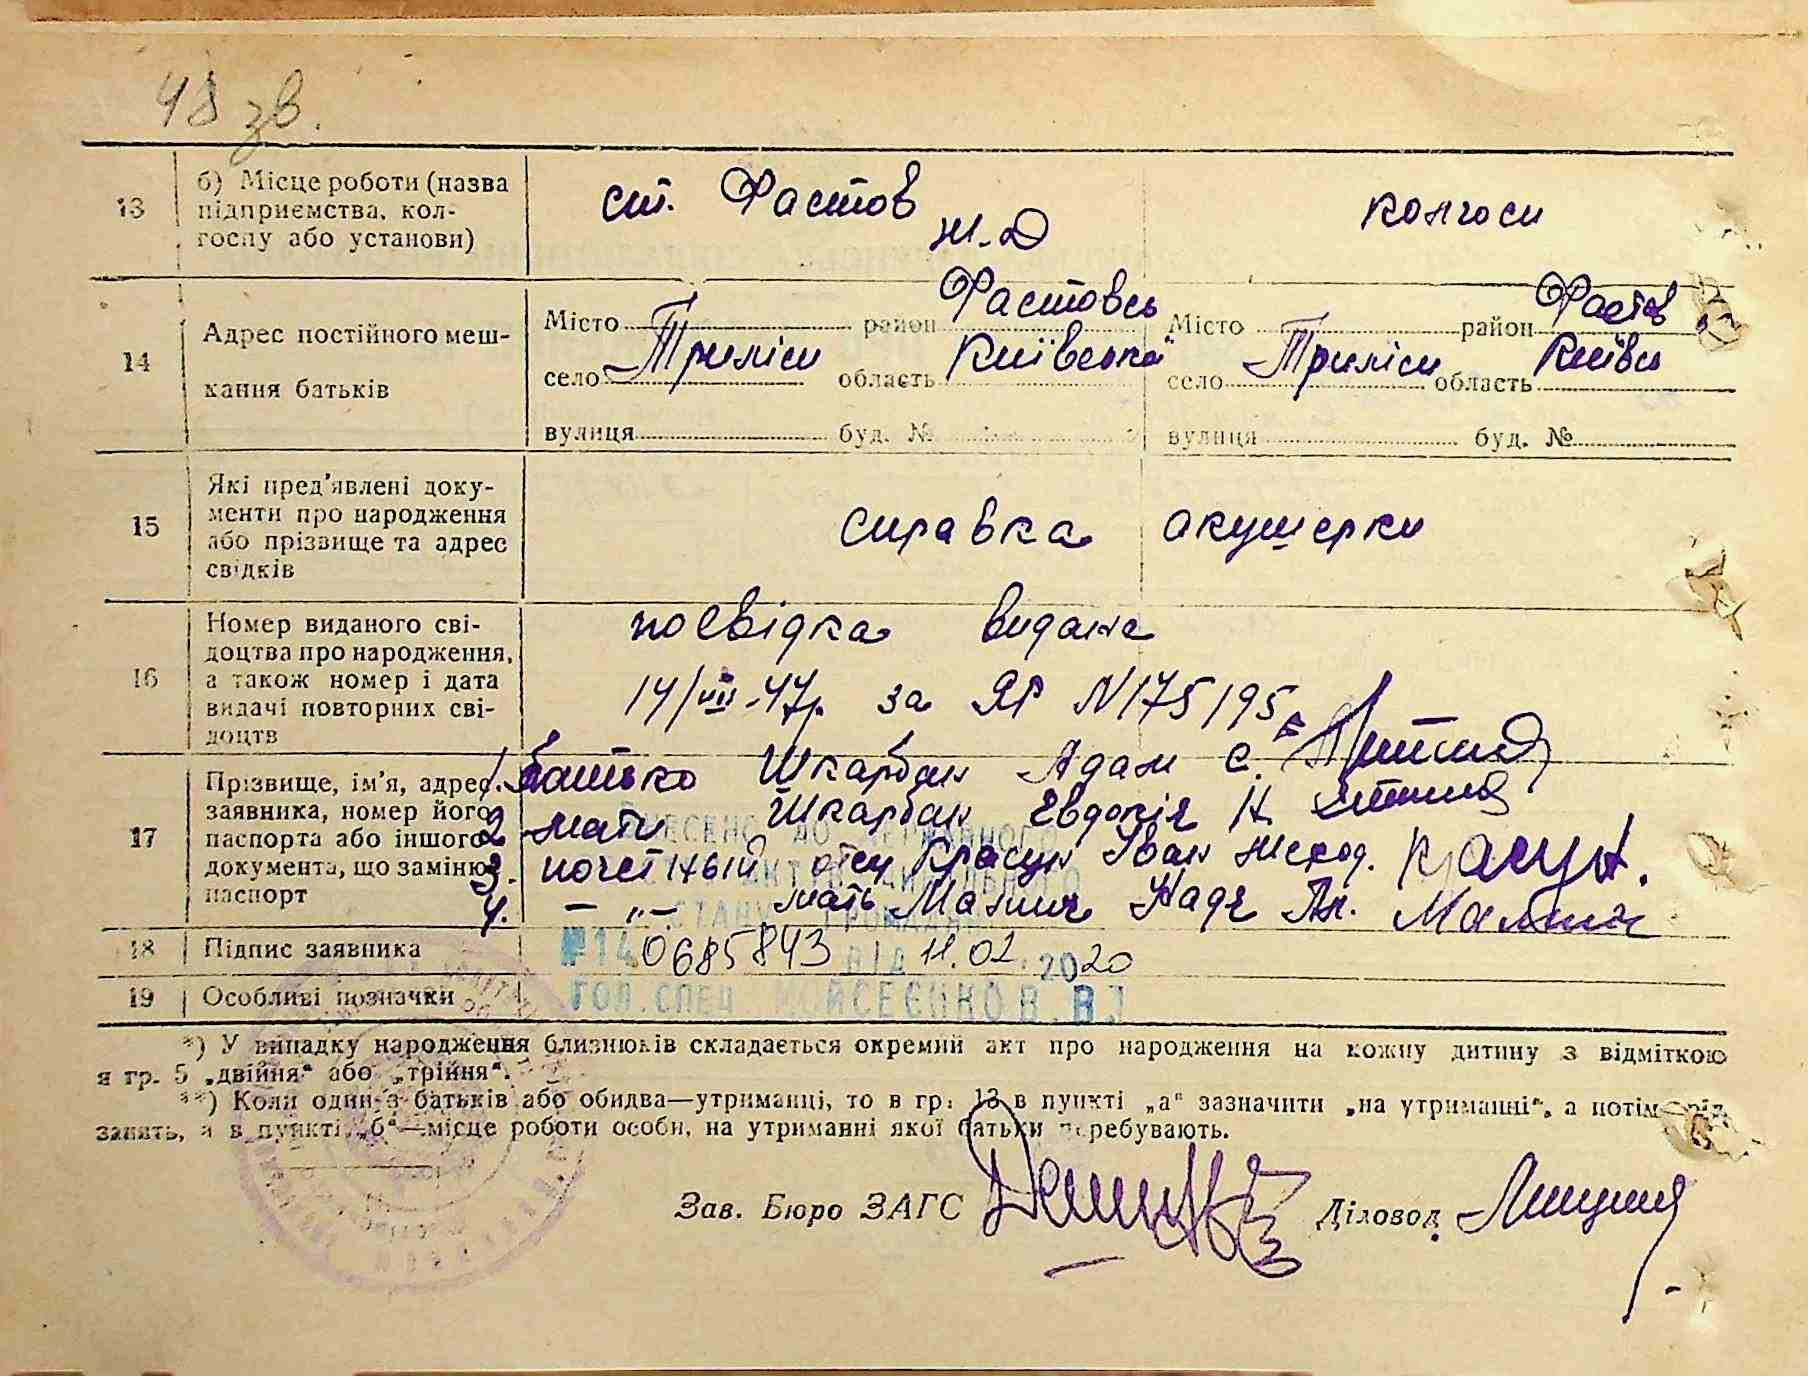 48 зв.
13
б) Місце роботи (назва
підприємства, кол-
госпу або установи)
ст. Фастов
ж.д
колгосп
14
Адрес постійного меш-
кання батьків
Місто район Фастовсь
село Триліси область Київська
вулиця буд. №
Місто район Фастов
село Триліси область Київсь
вулиця буд. №
15
Які пред'явлені доку-
менти про народження
або прізвище та адрес
свідків
справка акушерки
16
Номер виданого сві-
доцтва про народження,
а також номер і дата
видачі повторних сві-
доцтв
посвідка видана
14/VIII-47р. за ЯР N175195
17
Прізвище, ім'я, адрес
заявника, номер його
паспорта або іншого
документа, що замінює
паспорт
1. батько Шкарбан Адам Є.
2 мати Шкарбан Евдокія Н
3. почетный отец Красун Іван Красун.
4. — „ — мать Надя
ВНЕСЕНО ДО ДЕРЖАВНОГО
РЕЄСТРУ АКТІВ ЦИВІЛЬНОГО
СТАНУ ГРОМАДЯН
18
Підпис заявника
№14 0685843 ВІД 11.02.2020
19
Особливі позначки
ГОЛ.СПЕЦ. МОЙСЕЄНКО В.В.
*) У випадку народження близнюків складається окремий акт про народження на кожну дитину з відміткою
я гр. 5 „двійня“ або „трійня“.
**) Коли один з батьків або обидва—утриманці, то в гр. 13 в пункті „а“ зазначити „на утриманні“, а потім рід
занять, а в пункті „б“—місце роботи особи, на утриманні якої батьки перебувають.
Зав. Бюро ЗАГС
Діловод